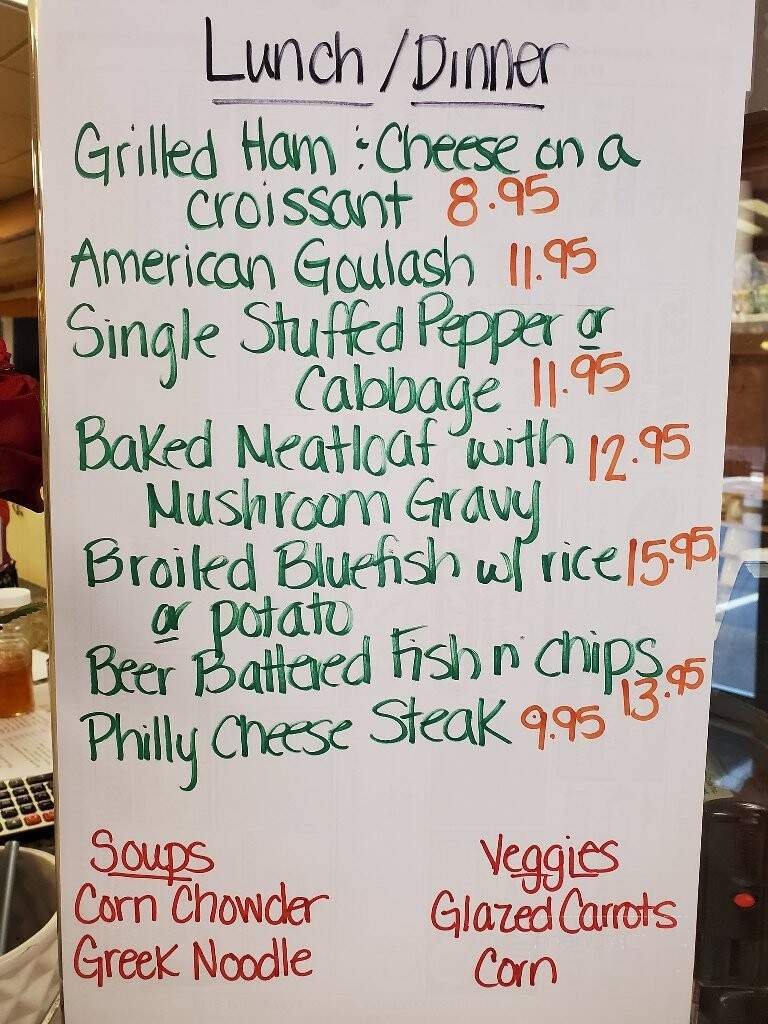 Lunch / Dinner
Grilled Ham & Cheese on a
croissant 8.95
American Goulash 11.95
Single Stuffed Pepper or
Cabbage 11.95
Baked Meatloaf with 12.95
Mushroom Gravy
Broiled Bluefish w/ rice 15.95
or potato
Beer Battered Fish n' chips
13.95
Philly Cheese Steak 9.95
Soups
Corn Chowder
Greek Noodle
Veggies
Glazed Carrots
Corn